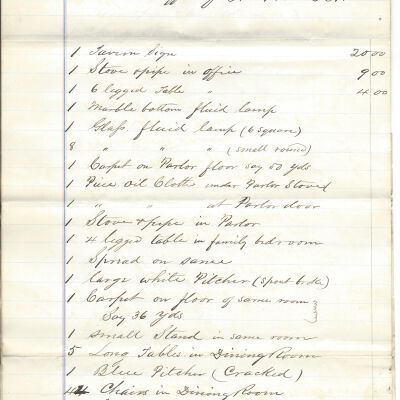 1 Tavern Sign 20 00
1 Stove & pipe in office 9 00
1 6 legged Table " 4 00
1 Marble bottom fluid lamp
1 Glass fluid lamp (6 square)
8 " " " (small round)
1 Carpet on Parlor floor say 50 yds
1 Piece Oil Cloth under Parlor Stoves
1 " " " at Parlor door
1 Stove & pipe in Parlor
1 4 legged table in family bedroom
1 Spread on same
1 large white Pitcher (spout broke)
1 Carpet on floor of same room
Say 36 Yds
1 small Stand in same room
5 Long Tables in Dining Room
1 Blue Pitcher (Cracked)
Chairs in Dining Room